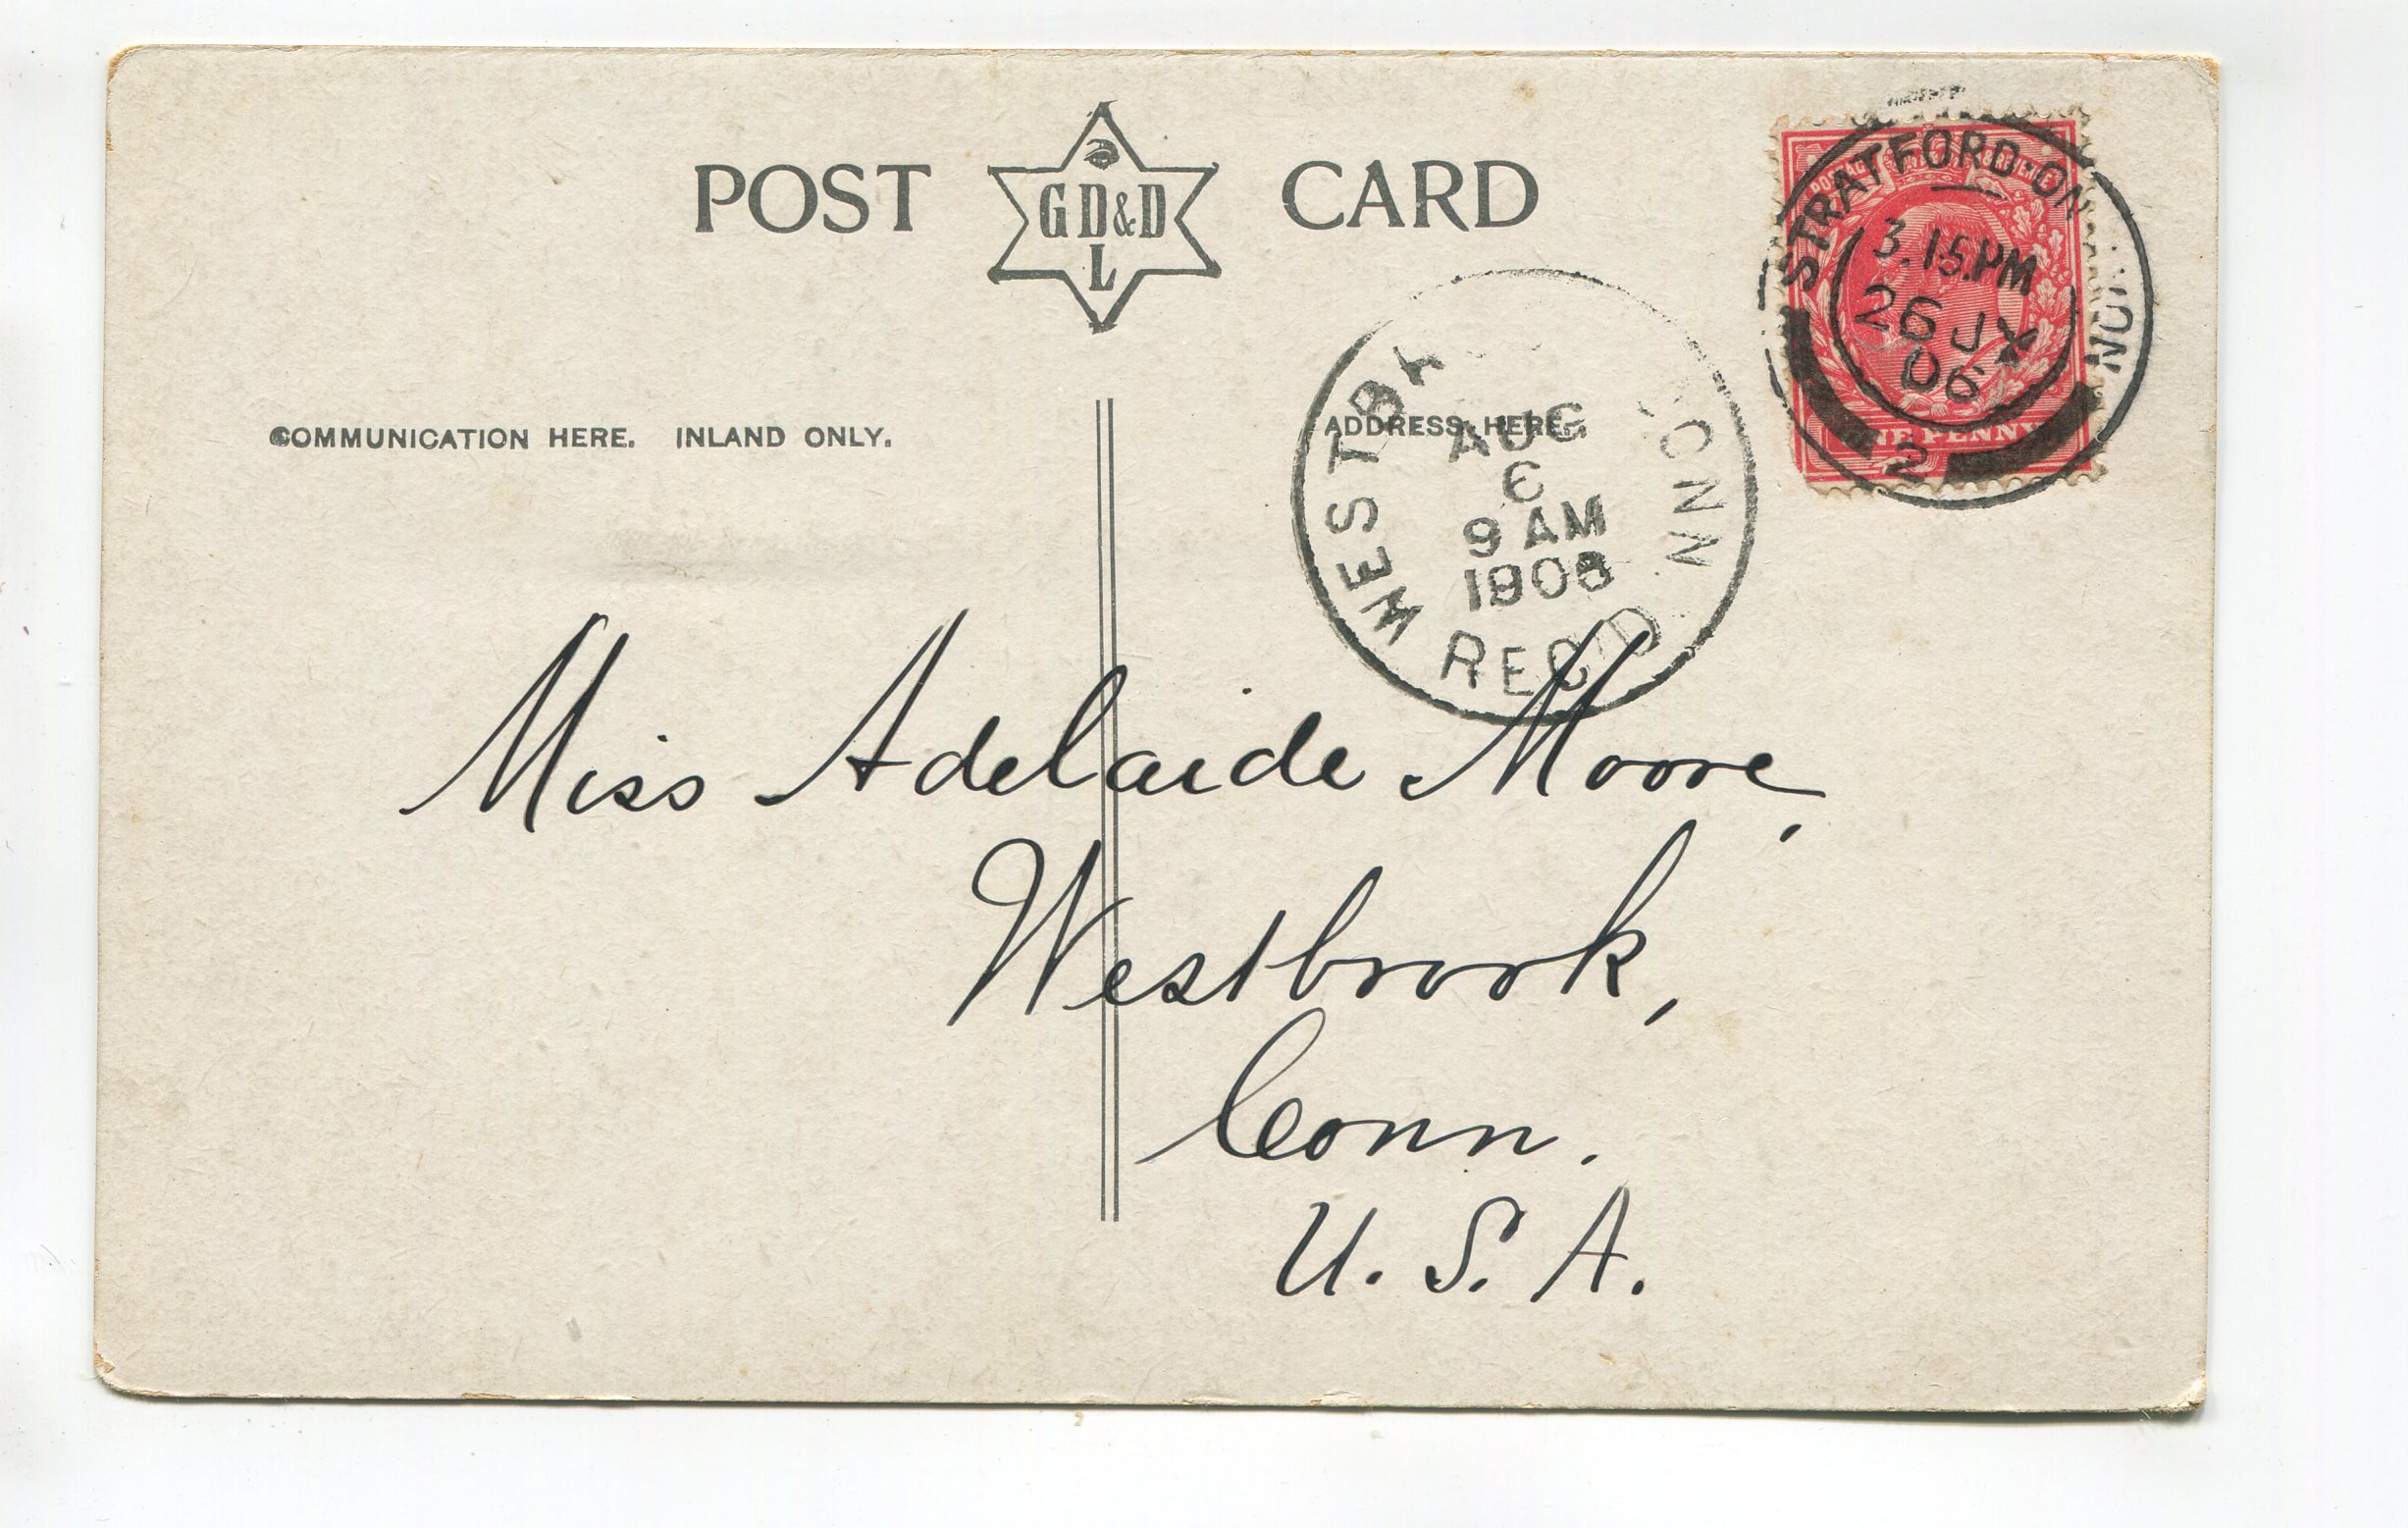 POST GD&D L CARD
STRATFORD-ON
3.15.PM
26 JY
06
2
ONE PENNY
COMMUNICATION HERE. INLAND ONLY.
ADDRESS HERE.
CONN
AUG
6
9 AM
1906
REC'D
Miss Adelaide Moore,
Westbrook,
Conn.
U. S. A.